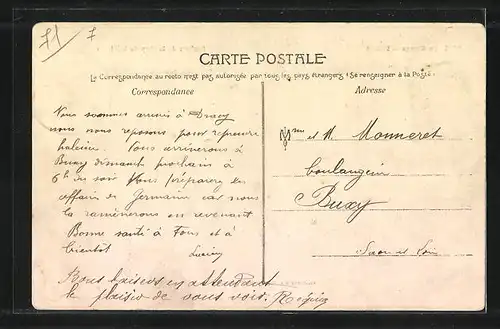 71
CARTE POSTALE
La Correspondance au recto n'est pas autorisée par tous les pays étrangers (Se renseigner à la Poste)
Correspondance
Adresse
Nous sommes arrivés à Dracy
nous nous reposons pour reprendre
haleine. Nous arriverons à
Buxy dimanche prochain à
6h du soir Vous préparerez les
affaires de Germaine car nous
la ramènerons en revenant
Bonne santé à Tous et à
bientôt
Mme et M. Monneret
boulanger
Buxy
Saone et Loire
Bons baisers en attendant
le plaisir de vous voir.